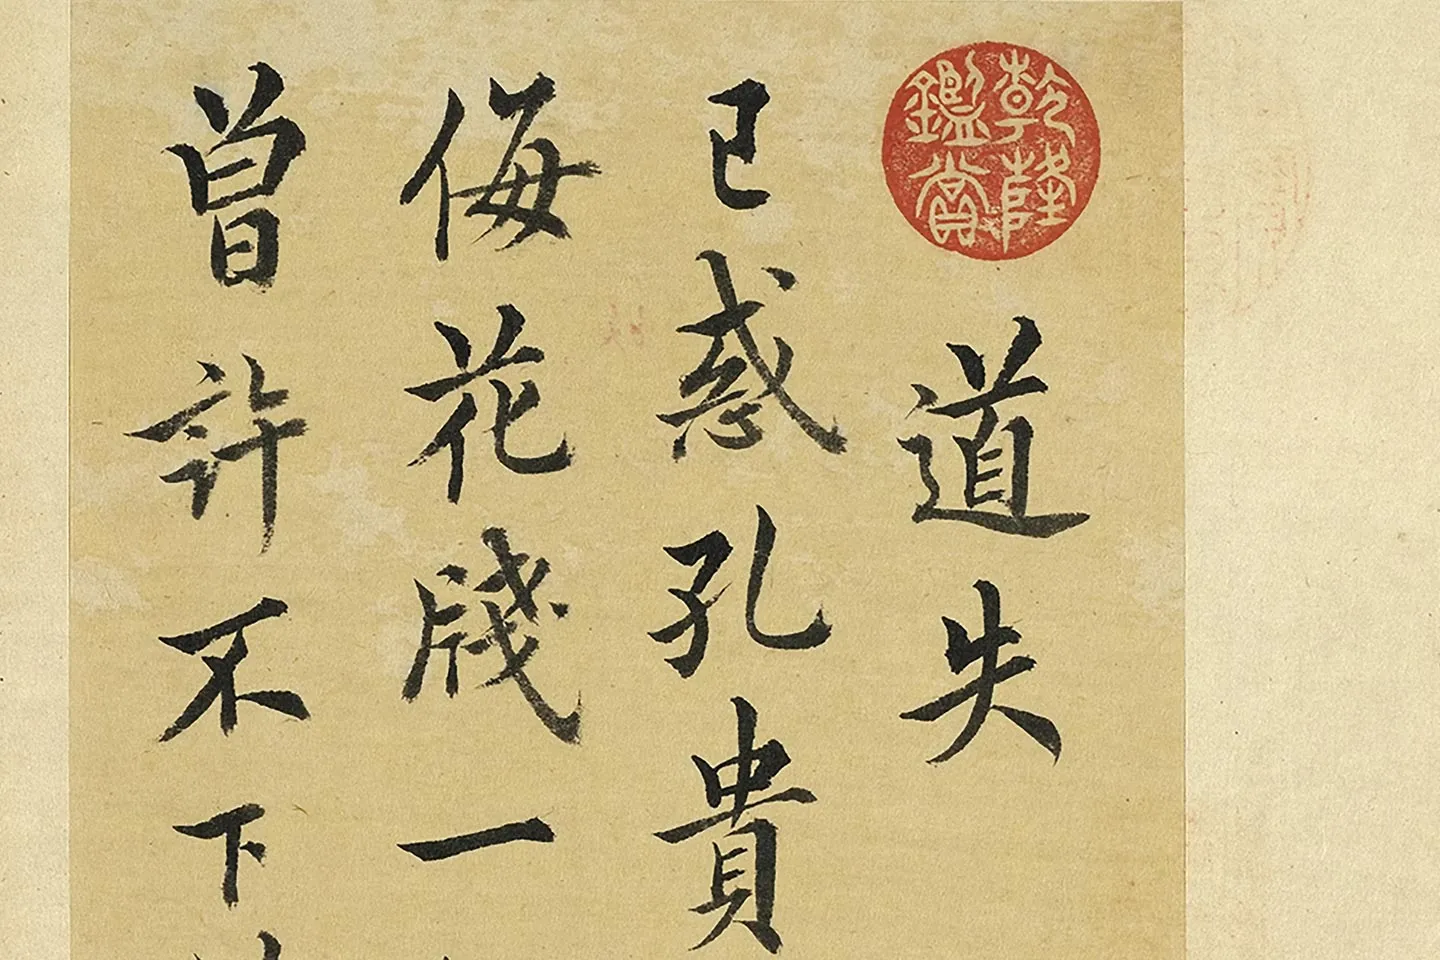 乾隆
鑑賞
道失
已惑孔貴
侮花牋一
曽許不下